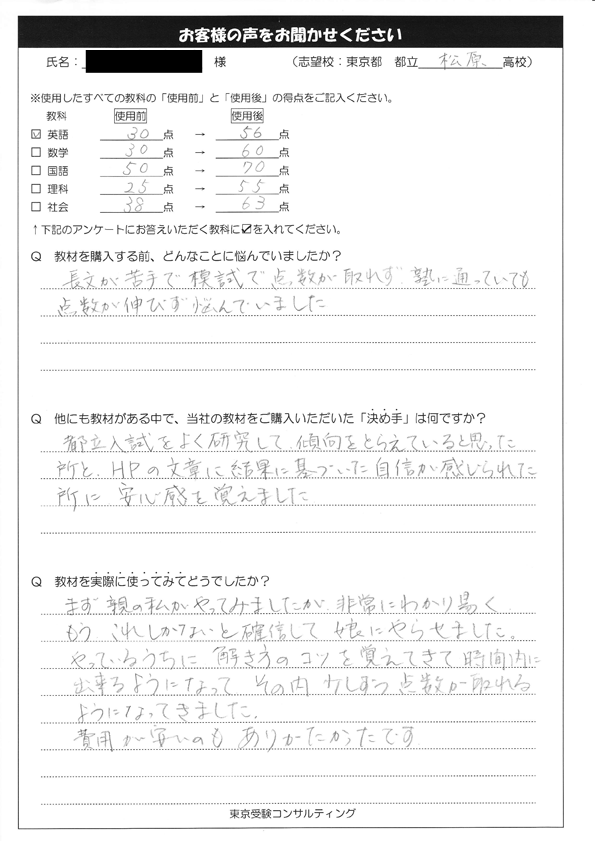 お客様の声をお聞かせください
氏名： 様 （志望校：東京都 都立 松原 高校）
※使用したすべての教科の「使用前」と「使用後」の得点をご記入ください。
教科 使用前 使用後
☑ 英語 30 点 → 56 点
□ 数学 30 点 → 60 点
□ 国語 50 点 → 70 点
□ 理科 25 点 → 55 点
□ 社会 38 点 → 63 点
↑下記のアンケートにお答えいただく教科に☑を入れてください。
Q 教材を購入する前、どんなことに悩んでいましたか？
長文が苦手で模試で点数が取れず、塾に通っていても
点数が伸びず悩んでいました
Q 他にも教材がある中で、当社の教材をご購入いただいた「決め手」は何ですか？
都立入試をよく研究して、傾向をとらえていると思った
所と、HPの文章に結果に基づいた自信が感じられた
所に 安心感を覚えました
Q 教材を実際に使ってみてどうでしたか？
まず 親の私がやってみましたが 非常にわかり易く
もう これしかないと確信して 娘にやらせました。
やっているうちに 解き方のコツを覚えてきて 時間内に
出来るようになって その内 少しずつ 点数が取れる
ようになってきました。
費用が安いのも ありがたかったです
東京受験コンサルティング